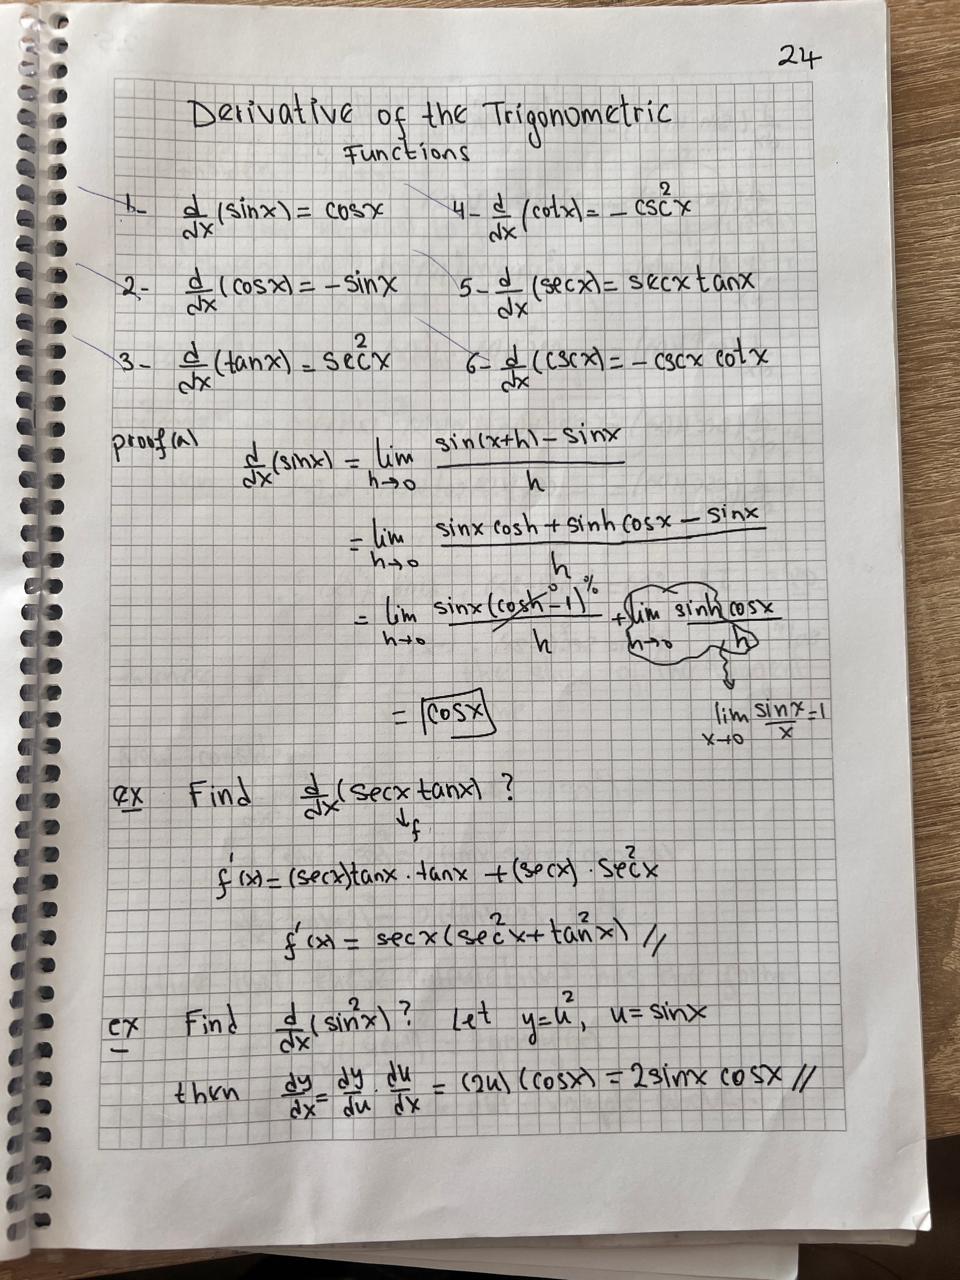 24
Derivative of the Trigonometric
Functions
1- d/dx (sinx) = cosx
4- d/dx (cotx) = - csc²x
2- d/dx (cosx) = - sinx
5- d/dx (secx) = secx tanx
3- d/dx (tanx) = sec²x
6- d/dx (cscx) = - cscx cotx
proof(a) d/dx (sinx) = lim h→0 (sin(x+h) - sinx)/h
= lim h→0 (sinx cosh + sinh cosx - sinx)/h
= lim h→0 (sinx (cosh - 1))/h + lim h→0 (sinh cosx)/h
= cosx
lim x→0 sinx/x = 1
ex Find d/dx (secx tanx) ?
↓f
f'(x) = (secx)tanx . tanx + (secx) . sec²x
f'(x) = secx (sec²x + tan²x) //
ex Find d/dx (sin²x) ? Let y=u², u = sinx
then dy/dx = dy/du . du/dx = (2u) (cosx) = 2sinx cosx //